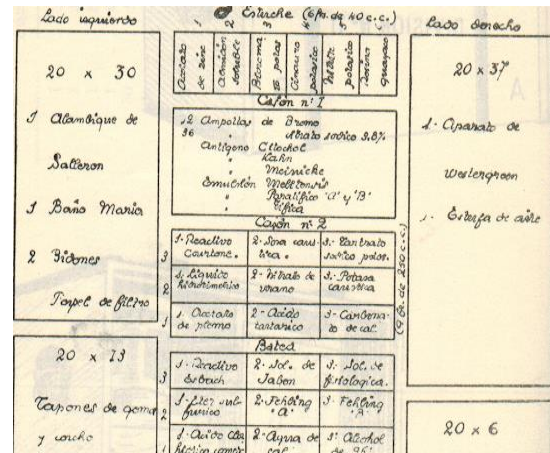 Lado izquierdo
20 x 30
1 Alambique de
Salleron
1 Baño Maria
2 Bidones
Papel de filtro
20 x 13
Tapones de goma
y corcho
Estuche (6 fr. de 40 c.c.)
1 2 3 4 5 6
Acetato de zinc
Almidon soluble
Bicroma to potas
Cianuro potasico
potasico
Resina guayaco
Cajón nº 1
12 Ampollas de Bromo
36 " Nitrato sodico 3,8%
Antígeno Citochol
" Kahn
" Meinicke
Emulsión Melitensis
" Paratifico "A" y "B"
" Tifica
Cajón nº 2
(9 fr. de 250 c.c.)
3
1- Reactivo
Courtone.
2- Sosa caus-
tica.
3- Tartrato
sodico potas.
2
1- Liquido
hidrotimetrico
2- Nitrato de
urano
3- Potasa
caustica
1
1- Acetato
de plomo
2- Acido
tartarico
3- Carbona-
to de cal.
Batea
3
1- Reactivo
Esbach
2- Sol. de
Jabon
3- Sol. de
fisiologica.
2
1- Eter sul-
furico
2- Fehling
"A"
3- Fehling
"B"
1
1- Acido clo
2- Agua de
cal
3- Alcohol
de 96
Lado derecho
20 x 37
1- Aparato de
Westergreen
1- Estufa de aire
20 x 6